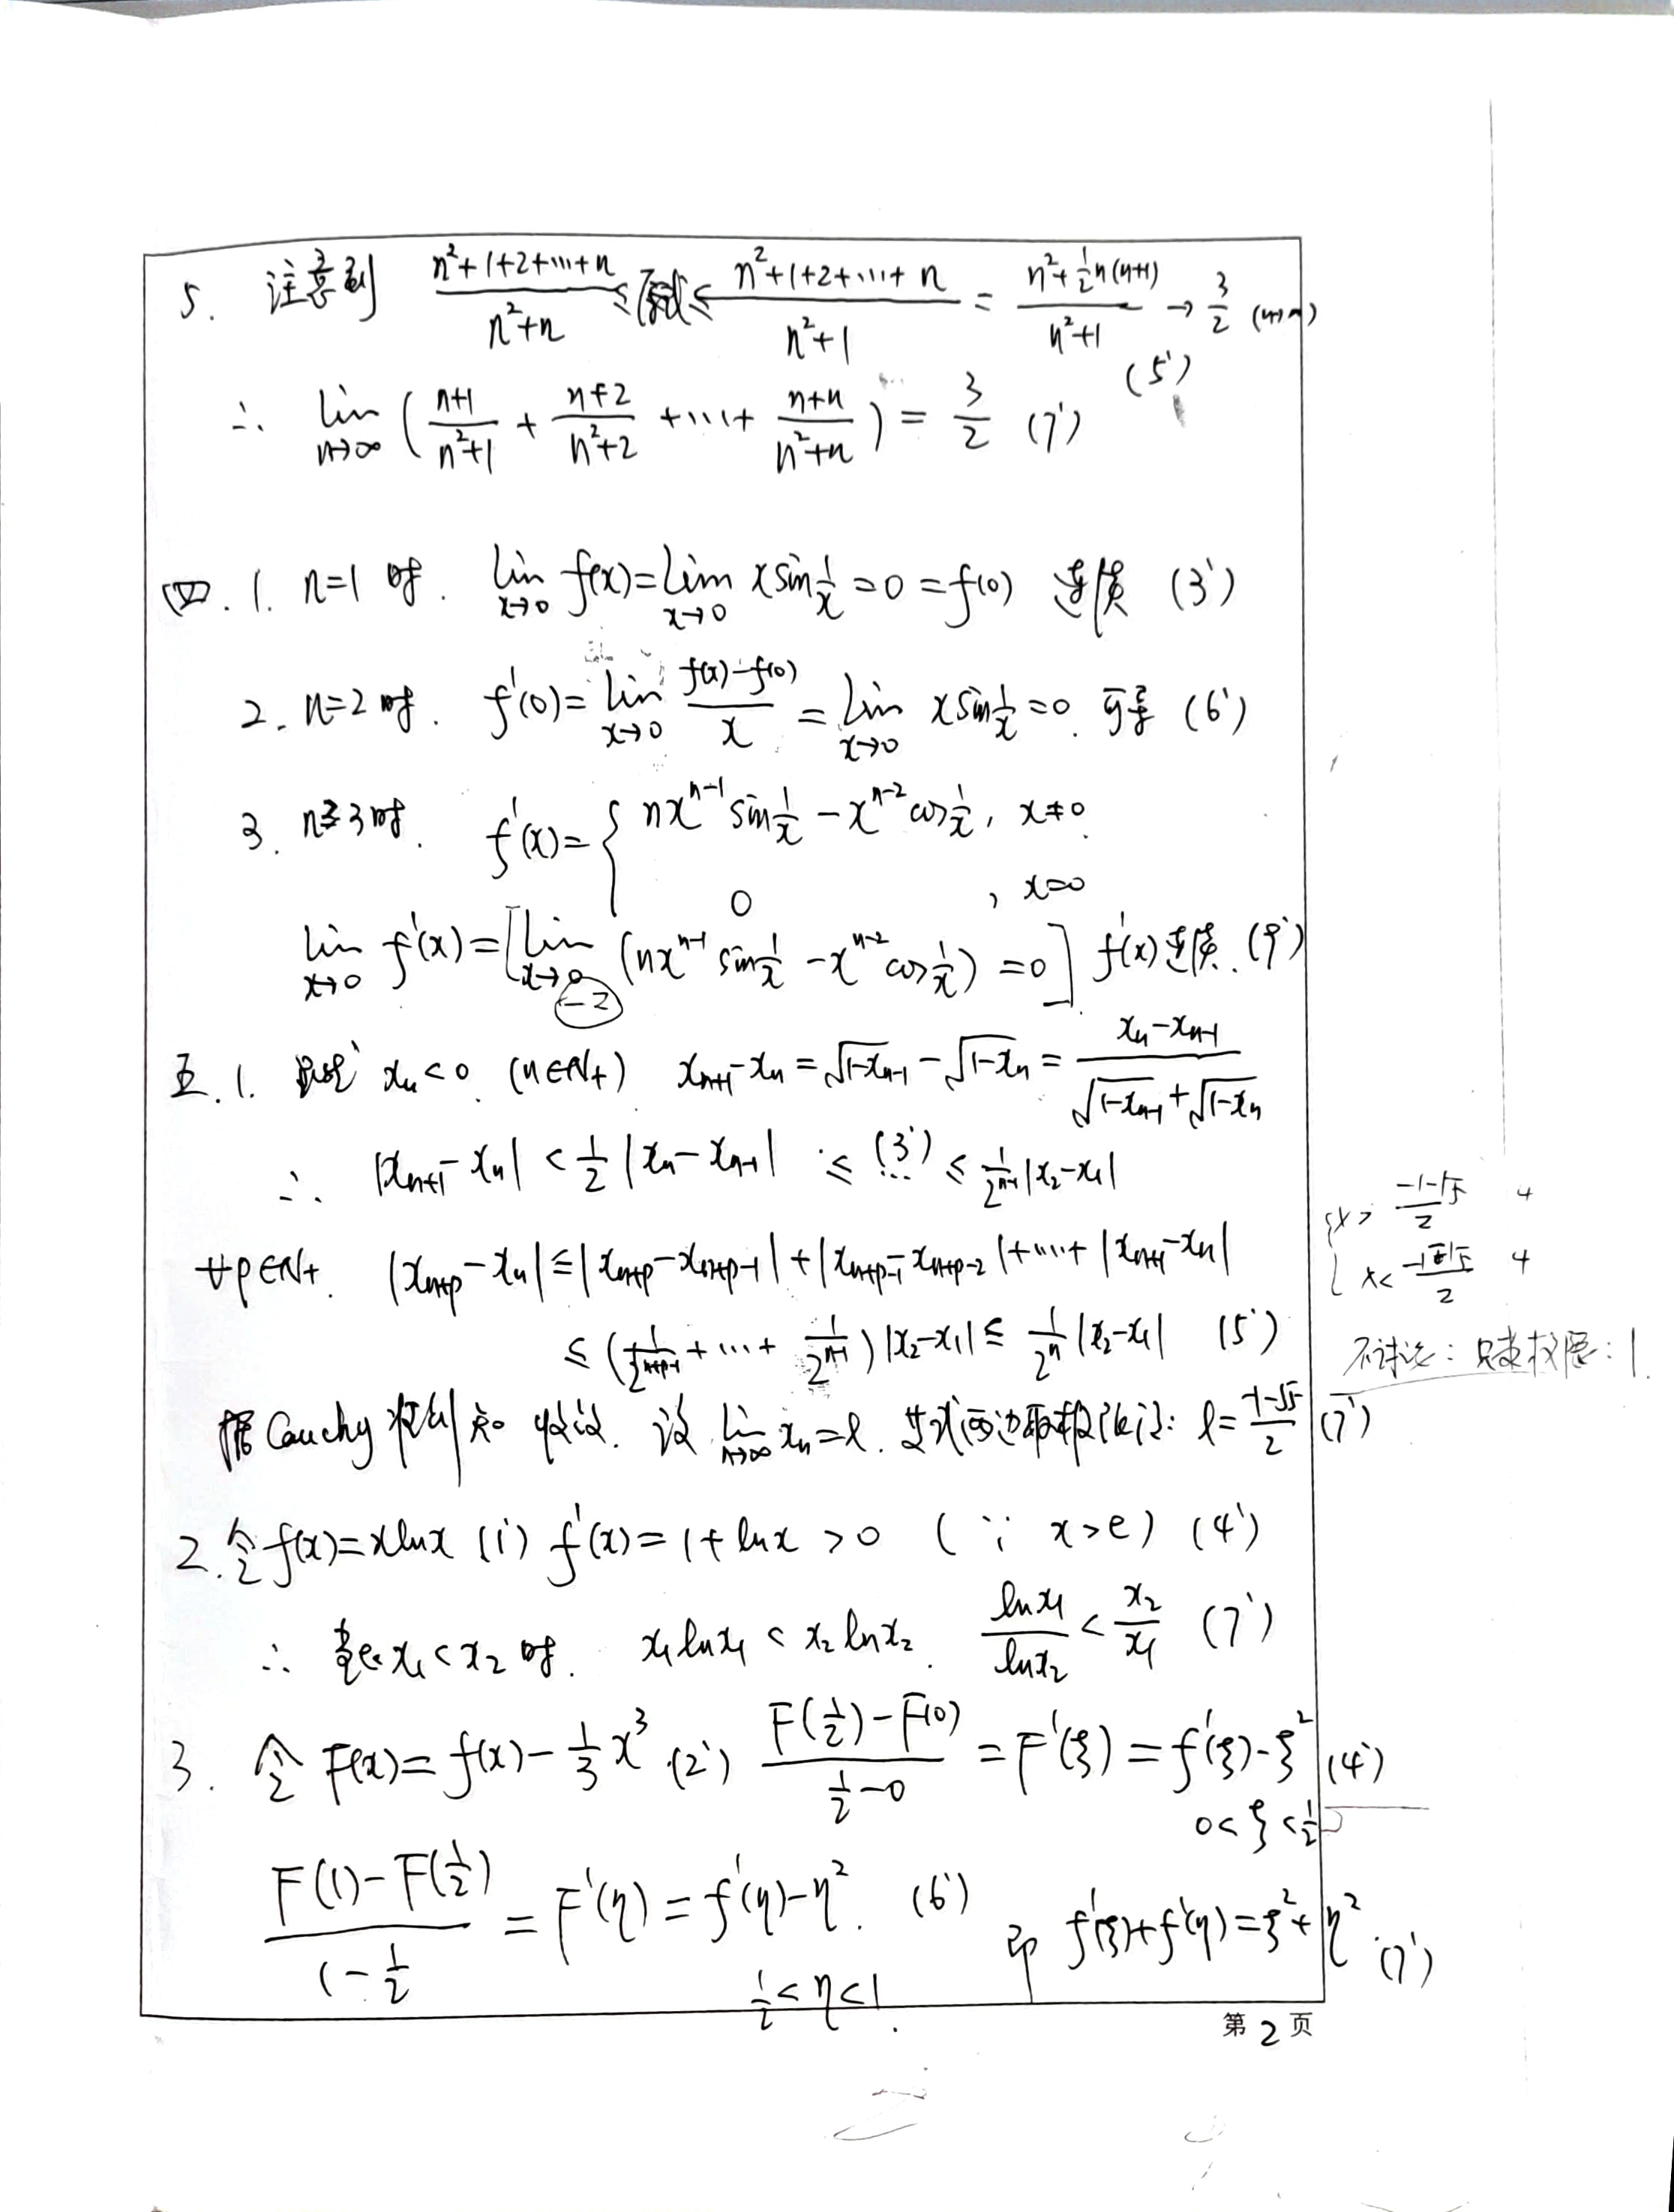 5. 注意到 \frac{n²+1+2+⋯+n}{n²+n} ≤ 原式 ≤ \frac{n²+1+2+⋯+n}{n²+1} = \frac{n²+\frac{1}{2}n(n+1)}{n²+1} → \frac{3}{2} (n→∞) (5')
∴ \lim_{n→∞} (\frac{n+1}{n²+1} + \frac{n+2}{n²+2} + ⋯ + \frac{n+n}{n²+n}) = \frac{3}{2} (7')
四. 1. n=1 时. \lim_{x→0} f(x) = \lim_{x→0} x sin\frac{1}{x} = 0 = f(0) 连续 (3')
2. n=2 时. f'(0) = \lim_{x→0} \frac{f(x)-f(0)}{x} = \lim_{x→0} x sin\frac{1}{x} = 0. 可导 (6')
3. n≥3 时. f'(x) = { nx^{n-1} sin\frac{1}{x} - x^{n-2} cos\frac{1}{x}, x≠0.
0 , x=0
\lim_{x→0} f'(x) = [\lim_{x→0} (nx^{n-1} sin\frac{1}{x} - x^{n-2} cos\frac{1}{x}) = 0] f'(x) 连续. (9')
-2
五. 1. x_n < 0. (n∈N₊) x_{n+1} - x_n = \sqrt{1-x_{n-1}} - \sqrt{1-x_n} = \frac{x_n - x_{n-1}}{\sqrt{1-x_{n-1}} + \sqrt{1-x_n}}
∴ |x_{n+1} - x_n| < \frac{1}{2} |x_n - x_{n-1}| ≤ ⋯ (3') ≤ \frac{1}{2^{n-1}} |x_2 - x_1|
∀p∈N₊. |x_{n+p} - x_n| ≤ |x_{n+p} - x_{n+p-1}| + |x_{n+p-1} - x_{n+p-2}| + ⋯ + |x_{n+1} - x_n|
{ x > \frac{-1-\sqrt{5}}{2} 4
x < \frac{-1-\sqrt{5}}{2} 4
≤ (\frac{1}{2^{n+p-1}} + ⋯ + \frac{1}{2^{n-1}}) |x_2 - x_1| ≤ \frac{1}{2^n} |x_2 - x_1| (5')
不讨论: 只求极限: 1
据 Cauchy 准则知 收敛. 设 \lim_{n→∞} x_n = l. 等式两边取极限得: l = \frac{-1-\sqrt{5}}{2} (7')
2. 令 f(x) = x ln x (1') f'(x) = 1 + ln x > 0 (∵ x > e) (4')
∴ 当 e< x_1 < x_2 时. x_1 ln x_1 < x_2 ln x_2. \frac{ln x_1}{ln x_2} < \frac{x_2}{x_1} (7')
3. 令 F(x) = f(x) - \frac{1}{3}x³ (2') \frac{F(\frac{1}{2}) - F(0)}{\frac{1}{2} - 0} = F'(ξ) = f'(ξ) - ξ² (4')
0 < ξ < \frac{1}{2}
\frac{F(1) - F(\frac{1}{2})}{1 - \frac{1}{2}} = F'(η) = f'(η) - η². (6') 即 f'(ξ) + f'(η) = ξ² + η². (7')
\frac{1}{2} < η < 1.
第 2 页